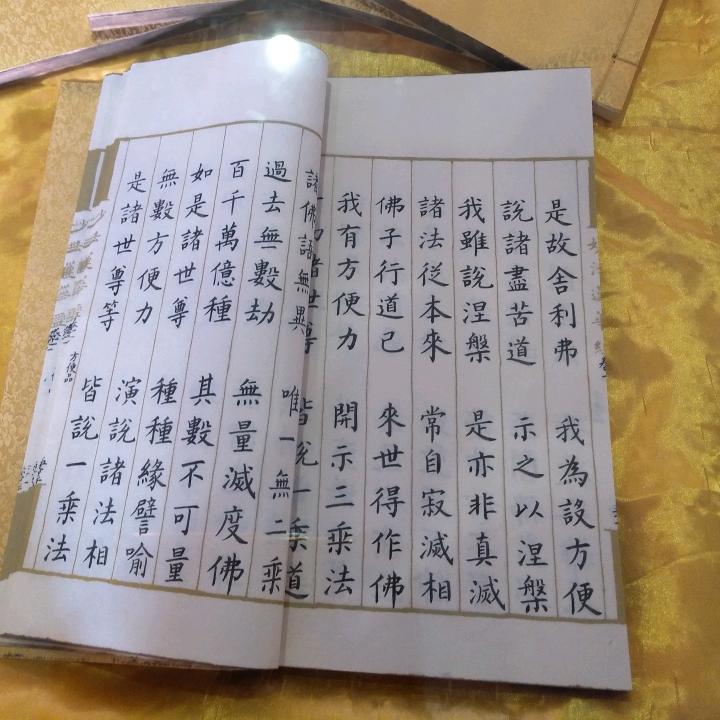 是故舍利弗 我為設方便
說諸盡苦道 示之以涅槃
我雖說涅槃 是亦非真滅
諸法從本來 常自寂滅相
佛子行道已 來世得作佛
我有方便力 開示三乘法
諸世尊 皆說一乘道
諸佛語無異 唯一無二乘
過去無數劫 無量滅度佛
百千萬億種 其數不可量
如是諸世尊 種種緣譬喻
無數方便力 演說諸法相
是諸世尊等 皆說一乘法
方便品